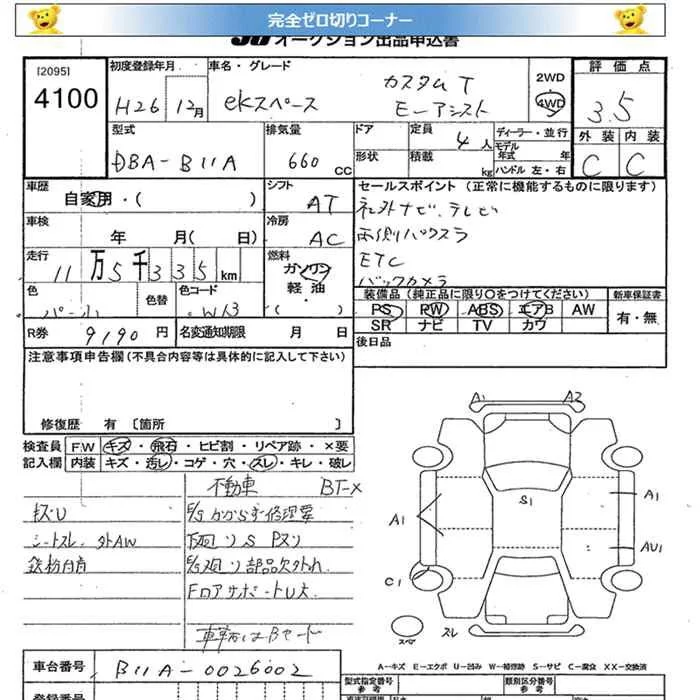 完全ゼロ切りコーナー
オークション出品申込書
[2095]
4100
初度登録年月 H26 12月
車名・グレード ekスペース カスタム T E-アシスト
2WD 4WD
評価点 3.5
型式 DBA-B11A
排気量 660 CC
ドア 形状
定員 4人
積載 kg
ディーラー・並行
モデル年式 年
ハンドル 左・右
外装 C 内装 C
車歴 自家用・( )
シフト AT
セールスポイント (正常に機能するものに限ります)
社外ナビ、テレビ
両側パワスラ
ETC
バックカメラ
車検 年 月( 日)
冷房 AC
走行 11万5千335km
燃料 ガソリン 軽油
色 パール 色替 色コード W13
装備品 (純正品に限り○をつけてください)
PS PW ABS エアB AW
SR ナビ TV カワ
新車保証書 有・無
R券 9190 円 名変通知期限 月 日
後日品
注意事項申告欄 (不具合内容等は具体的に記入して下さい)
修復歴 有 [箇所 ]
検査員 F.W キズ・飛石・ヒビ割・リペア跡・×要
記入欄 内装 キズ・汚レ・コゲ・穴・スレ・キレ・破レ
不動車 BT-×
キズU E/Sかからず修理要
シートスレ、外AW 下廻りS Pヌリ
鉄粉付着 E/G廻り部品欠外れ
FロアサポートU大
A1 A2
S1
A1 A1
AU1
C1
スペア スレ
A-キズ E-エクボ U-凹み W-補修跡 S-サビ C-腐食 XX-交換済
車台番号 B11A-0026002
型式指定番号 参考
類別区分番号 参考
登録番号